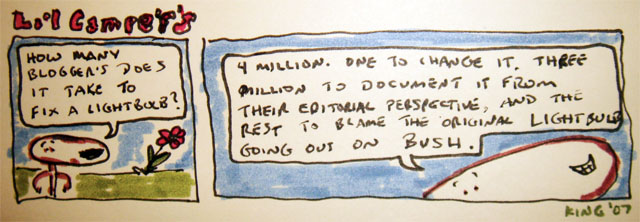 Li'l Camper's
HOW MANY
BLOGGER'S DOES
IT TAKE TO
FIX A LIGHTBULB?
4 MILLION. ONE TO CHANGE IT, THREE
MILLION TO DOCUMENT IT FROM
THEIR EDITORIAL PERSPECTIVE, AND THE
REST TO BLAME THE ORIGINAL LIGHTBULB
GOING OUT ON BUSH.
KING '07